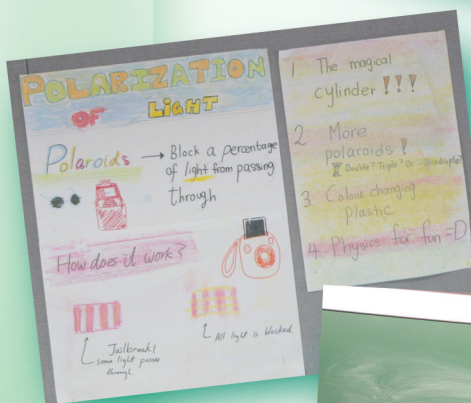 POLARIZATION
OF LIGHT
Polaroids → Block a percentage
of light from passing
through
How does it work?
Jailbreak!
some light passes
through
All light is blocked
1 The magical
cylinder !!!
2. More
polaroids !
Double? Triple? Or Quadruple?
3 Colour changing
Plastic
4. Physics for fun =D